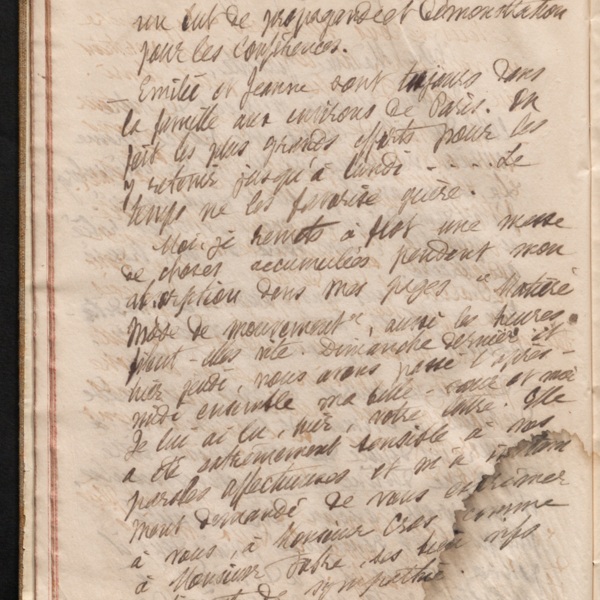 un but de propagande et démonstration
pour les conférences.
Emilie et Jeanne sont toujours dans
la famille aux environs de Paris. On
fait les plus grands efforts pour les
y retenir jusqu'à lundi - - - Le
temps ne les favorise guère.
Moi, je remets à flot une masse
de choses accumulées pendant mon
absorption dans mes pages "Matière
Mode de mouvement", aussi les heures
filent-elles vite. Dimanche dernier et
hier jeudi, nous avons passé l'après-
midi ensemble ma belle-sœur et moi
Je lui ai lu, hier, votre lettre. Elle
a été extrêmement sensible à vos
paroles affectueuses et m'a
demandé de vous exprimer
à vous, à Monsieur Cros comme
à Monsieur Fabre, ses
de sympathie.